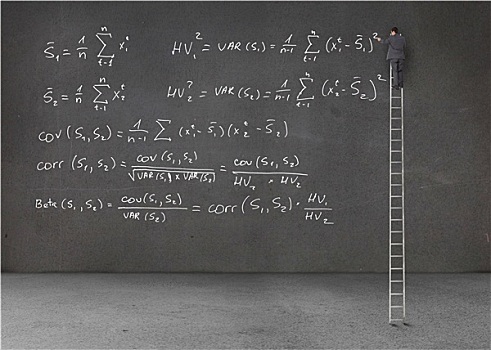 S̄₁ = 1/n ∑ₜ₋₁ⁿ x₁ᵗ HV₁² = VAR(S₁) = 1/n-1 ∑ₜ₋₁ⁿ (x₁ᵗ - S̄₁)²
S̄₂ = 1/n ∑ₜ₋₁ⁿ x₂ᵗ HV₂² = VAR(S₂) = 1/n-1 ∑ₜ₋₁ⁿ (x₂ᵗ - S̄₂)²
cov(S₁,S₂) = 1/n-1 ∑ (x₁ᵗ - S̄₁)(x₂ᵗ - S̄₂)
corr(S₁,S₂) = cov(S₁,S₂)/√VAR(S₁) x VAR(S₂) = cov(S₁,S₂)/HV₁ x HV₂
Beta(S₁,S₂) = cov(S₁,S₂)/VAR(S₂) = corr(S₁,S₂) · HV₁/HV₂